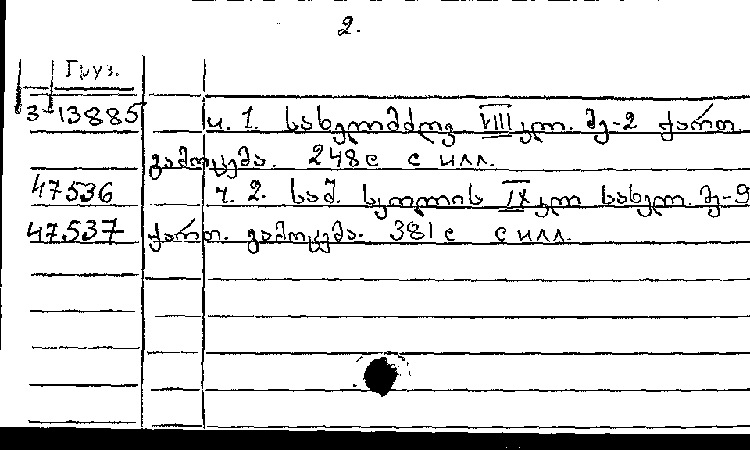 2.
Груз.
3-13885 ч. 1. სახელმძღვ. VIII კლ. მე-2 ქართ.
გამოცემა. 248 с с илл.
47536 ч. 2. საშ. სკოლის IX კლ სახელ. მე-9
47537 ქართ. გამოცემა. 381 с с илл.